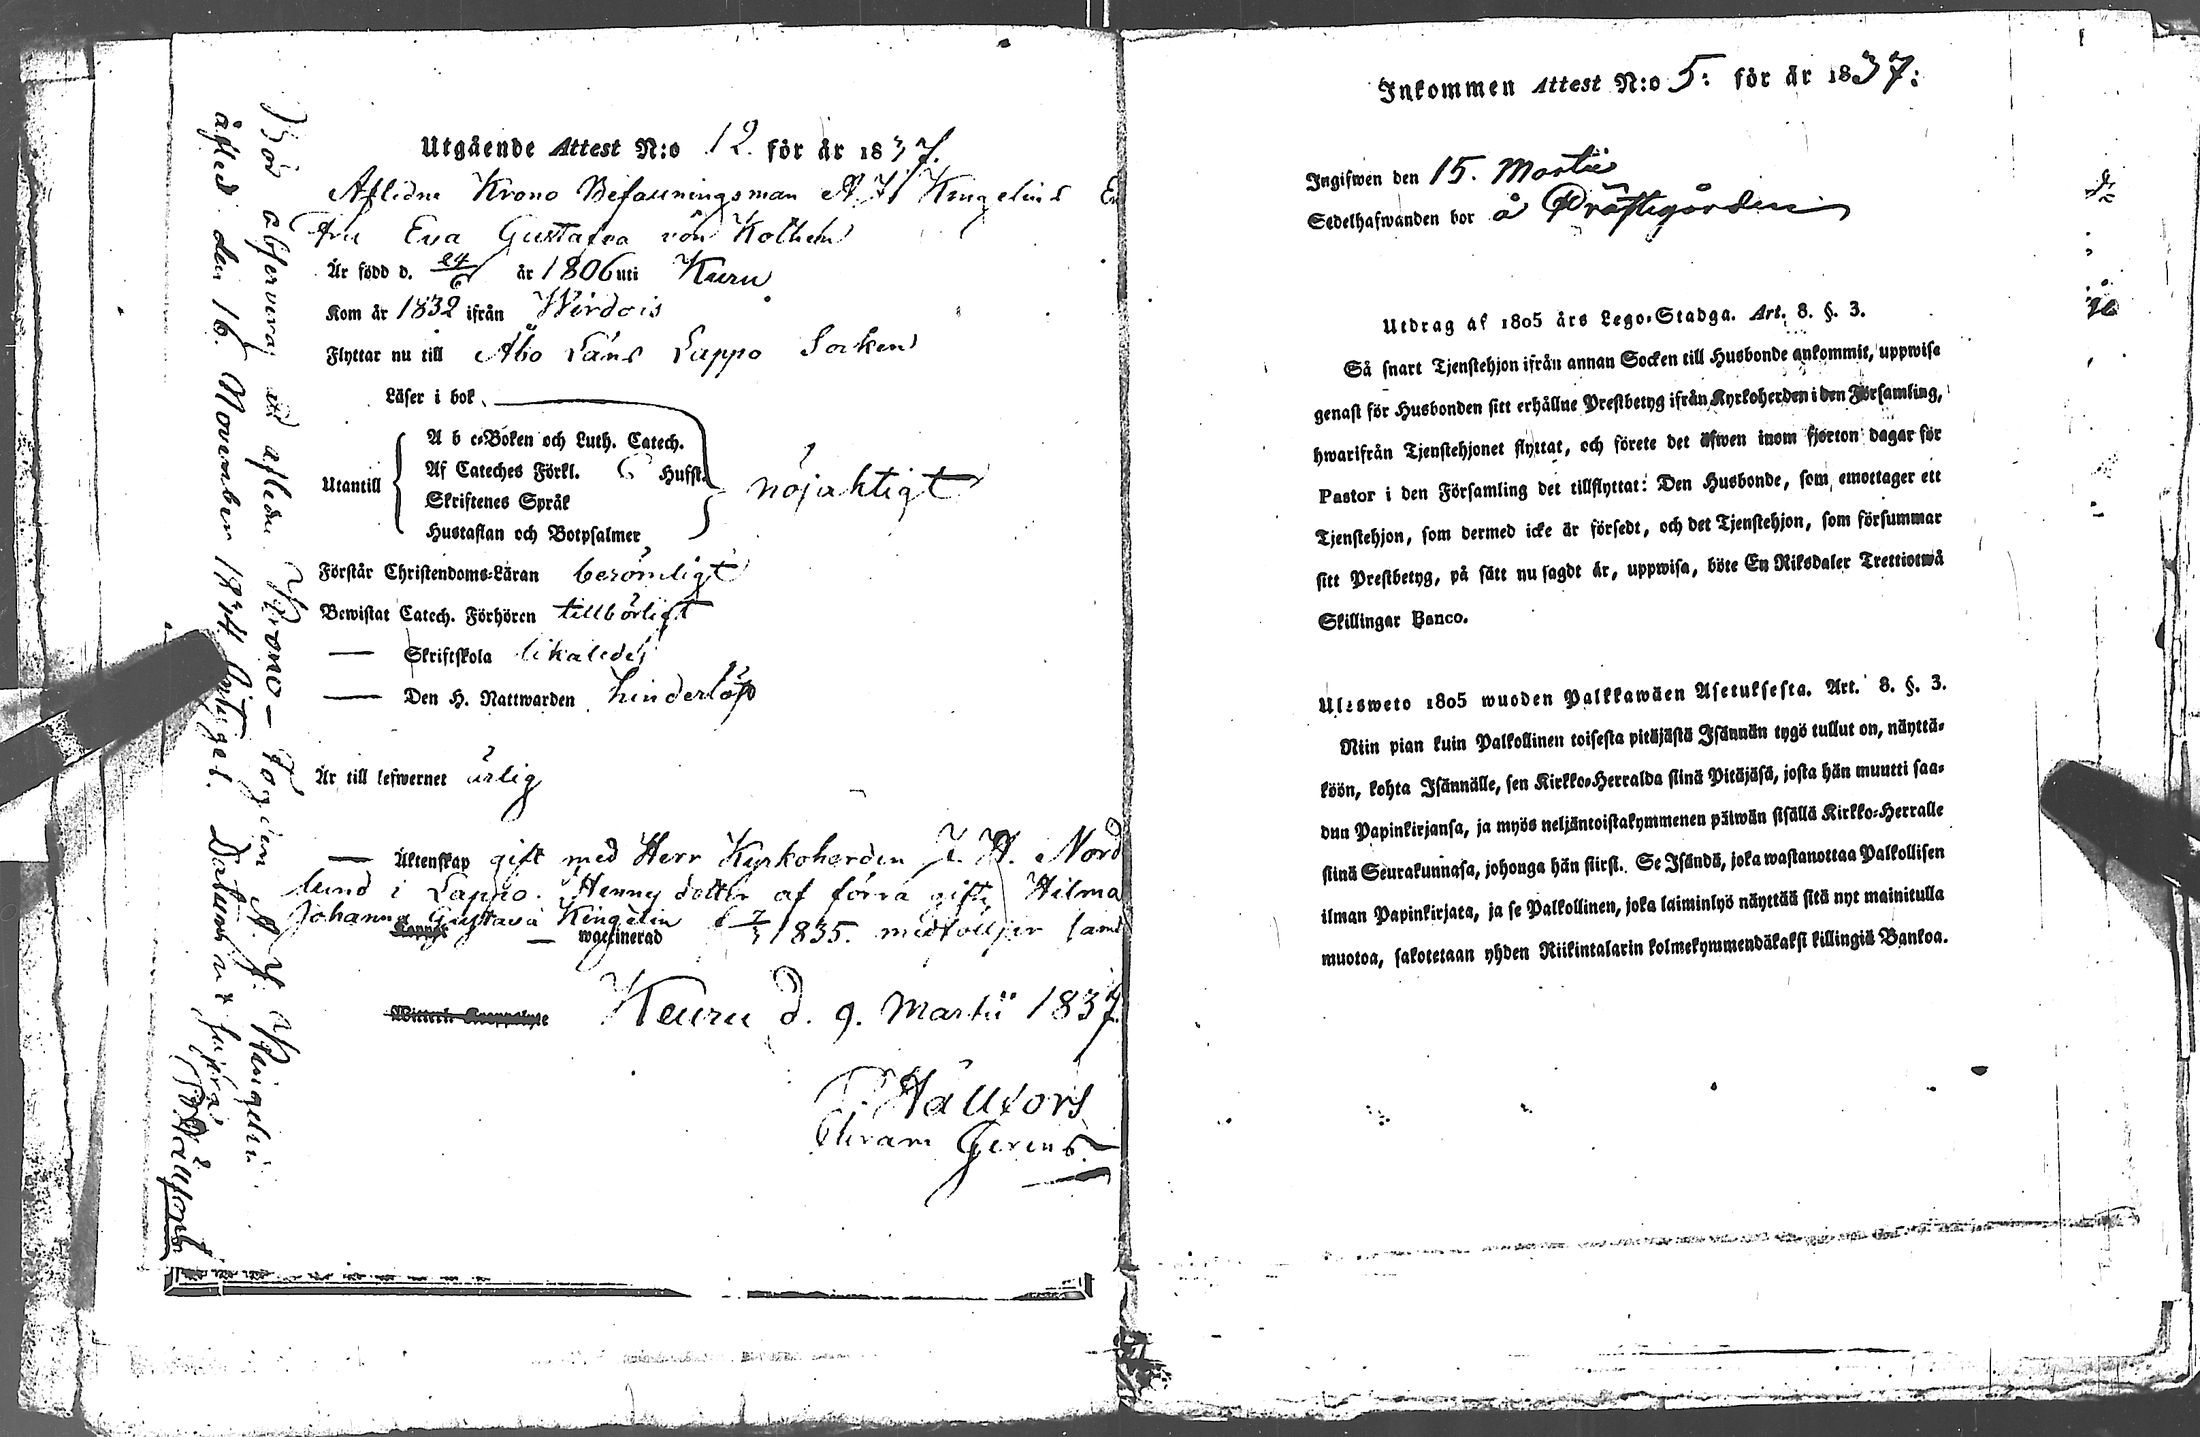 Utgående Attest N:o 12. för år 1837.
Aflidne Krono Befallningsman A. J. Kingelins
Fru Eva Gustafva von Kothen
Är född d. 24/6 år 1806 uti Kuru
Kom år 1832 ifrån Wirdois
Flyttar nu till Åbo Läns Lappo Socken
Läser i bok
Utantill
A b c-Boken och Luth. Catech.
Af Cateches Förkl. 6 Hufst.
Skriftenes Språk
Hustaflan och Botpsalmer
nöjaktigt
Förstår Christendoms-Läran berömligt
Bewistat Catech. Förhören tillbörligt
— Skriftskola likaledes
— Den H. Nattwarden hinderlös
Är till lefwernet ärlig
— Äktenskap gift med Herr Kyrkoherden J. H. Nord
lund i Lappo. Hennes dotter af förra giftet Hilma
Johanna Gustava Kingelin
— waccinerad 1835. medföljer
Keuru d. 9. Martii 1837.
Hällfors
Gerens.
Bör observeras att aflidne Krono-Fogden A. J. Kingelin
afled den 16. November 1834. Datum ut supra
Hällfors
Inkommen Attest N:o 5: för år 1837:
Ingifwen den 15. Martii
Sedelhafwanden bor å Prästegården
Utdrag af 1805 års Lego-Stadga. Art. 8. §. 3.
Så snart Tjenstehjon ifrån annan Socken till Husbonde ankommit, uppwise
genast för Husbonden sitt erhållne Prestbetyg ifrån Kyrkoherden i den Församling,
hwarifrån Tjenstehjonet flyttat, och förete det äfwen inom fjorton dagar för
Pastor i den Församling det tillflyttat: Den Husbonde, som emottager ett
Tjenstehjon, som dermed icke är försedt, och det Tjenstehjon, som försummar
sitt Prestbetyg, på sätt nu sagdt är, uppwisa, böte En Riksdaler Trettiotwå
Skillingar Banco.
Ulosweto 1805 wuoden Palkkawäen Asetuksesta. Art. 8. §. 3.
Niin pian kuin Palkollinen toisesta pitäjästä Isännän tygö tullut on, näyttä-
köön, kohta Isännälle, sen Kirkko-Herralda siinä Pitäjäsä, josta hän muutti saa-
dun Papinkirjansa, ja myös neljäntoistakymmenen päiwän sisällä Kirkko-Herralle
siinä Seurakunnasa, johonga hän siirst. Se Isändä, joka wastanottaa Palkollisen
ilman Papinkirjata, ja se Palkollinen, joka laiminlyö näyttää sitä nyt mainitulla
muotoa, sakotetaan yhden Riikintalarin kolmekymmendäkaksi killingiä Bankoa.